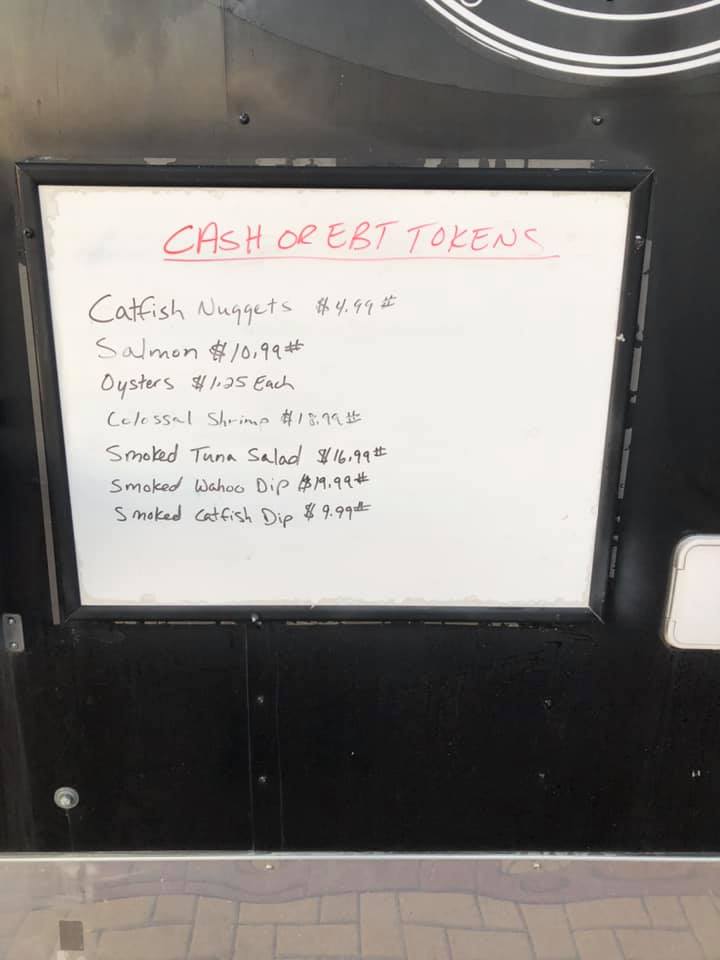 CASH OR EBT TOKENS
Catfish Nuggets $4.99#
Salmon $10.99#
Oysters $1.25 Each
Colossal Shrimp $18.99#
Smoked Tuna Salad $16.99#
Smoked Wahoo Dip $19.99#
Smoked Catfish Dip $9.99#